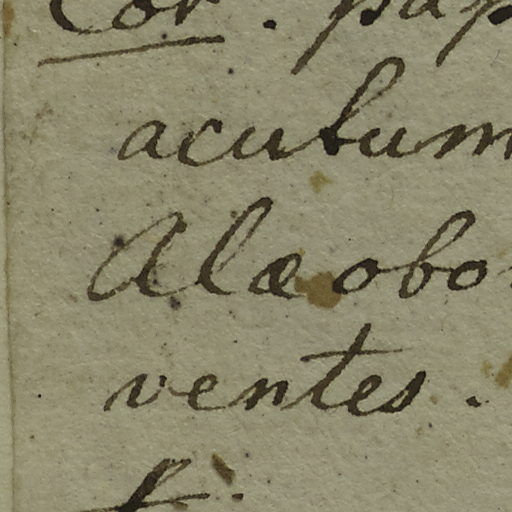 Cor. pap
acutum
Alæ obo
ventes.
f.